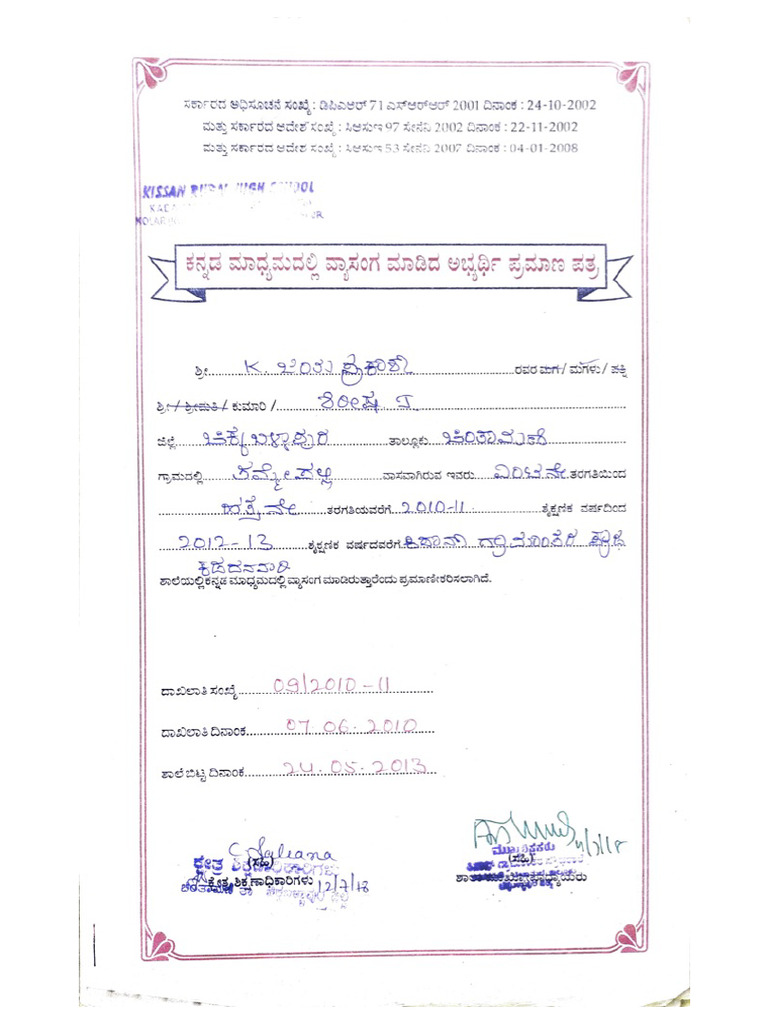 ಸರ್ಕಾರದ ಅಧಿಸೂಚನೆ ಸಂಖ್ಯೆ : ಡಿಪಿಎಆರ್ 71 ಎಸ್ಆರ್ಆರ್ 2001 ದಿನಾಂಕ : 24-10-2002
ಮತ್ತು ಸರ್ಕಾರದ ಆದೇಶ ಸಂಖ್ಯೆ : ಸಿಆಸುಇ 97 ಸೇನೆನಿ 2002 ದಿನಾಂಕ : 22-11-2002
ಮತ್ತು ಸರ್ಕಾರದ ಆದೇಶ ಸಂಖ್ಯೆ : ಸಿಆಸುಇ 53 ಸೇನೆನಿ 2007 ದಿನಾಂಕ : 04-01-2008
KISSAN RURAL HIGH SCHOOL
ಕನ್ನಡ ಮಾಧ್ಯಮದಲ್ಲಿ ವ್ಯಾಸಂಗ ಮಾಡಿದ ಅಭ್ಯರ್ಥಿ ಪ್ರಮಾಣ ಪತ್ರ
ಶ್ರೀ K. ಪ್ರಕಾಶ್ ರವರ ಮಗ / ಮಗಳು / ಪತ್ನಿ
ಶ್ರೀ / ಶ್ರೀಮತಿ / ಕುಮಾರಿ / ಶಿರೀಷ
ಜಿಲ್ಲೆ ಚಿಕ್ಕಬಳ್ಳಾಪುರ ತಾಲ್ಲೂಕು ಚಿಂತಾಮಣಿ
ಗ್ರಾಮದಲ್ಲಿ ವಾಸವಾಗಿರುವ ಇವರು ಎಂಟನೇ ತರಗತಿಯಿಂದ
ಹತ್ತನೇ ತರಗತಿಯವರೆಗೆ 2010-11 ಶೈಕ್ಷಣಿಕ ವರ್ಷದಿಂದ
2012-13 ಶೈಕ್ಷಣಿಕ ವರ್ಷದವರೆಗೆ ಕಿಸಾನ್ ಗ್ರಾಮಾಂತರ ಪ್ರೌಢ
ಕಡದನಮರಿ
ಶಾಲೆಯಲ್ಲಿ ಕನ್ನಡ ಮಾಧ್ಯಮದಲ್ಲಿ ವ್ಯಾಸಂಗ ಮಾಡಿರುತ್ತಾರೆಂದು ಪ್ರಮಾಣೀಕರಿಸಲಾಗಿದೆ.
ದಾಖಲಾತಿ ಸಂಖ್ಯೆ 09/2010-11
ದಾಖಲಾತಿ ದಿನಾಂಕ 07.06.2010
ಶಾಲೆ ಬಿಟ್ಟ ದಿನಾಂಕ 24.05.2013
(ಸಹಿ)
ಕ್ಷೇತ್ರ ಶಿಕ್ಷಣಾಧಿಕಾರಿಗಳು
ಕ್ಷೇತ್ರ ಶಿಕ್ಷಣಾಧಿಕಾರಿಗಳು 12/7/18
ಮುಖ್ಯ ಶಿಕ್ಷಕರು
(ಸಹಿ)